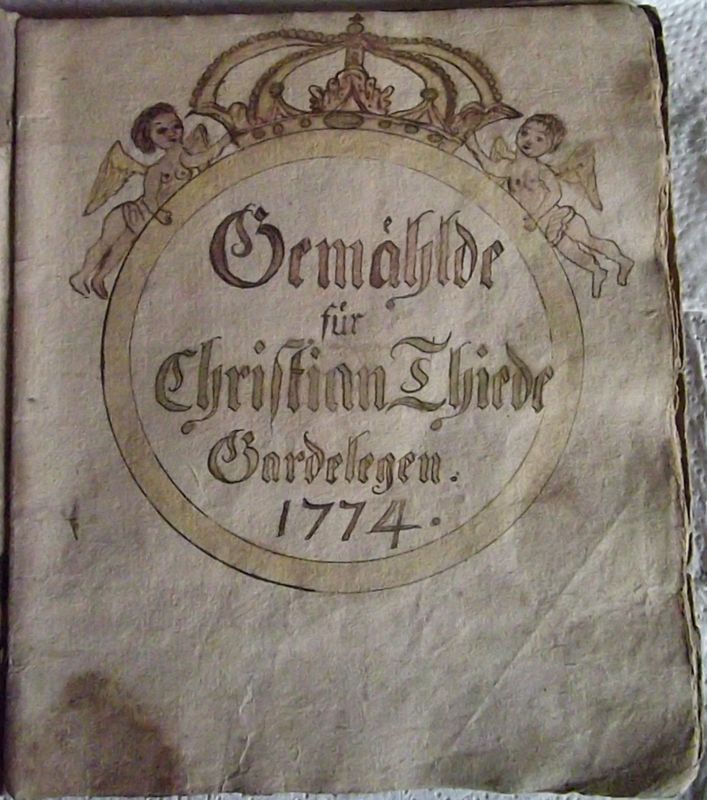 Gemählde
für
Chriſtian Thiede
Gardelegen.
1774.